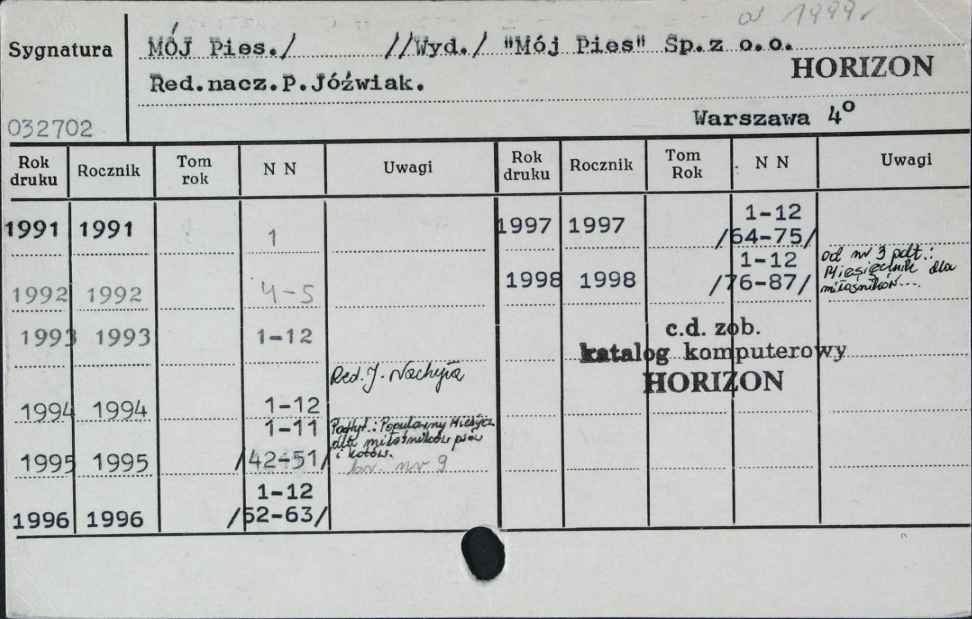 od 1999r
Sygnatura
MÓJ Pies./ //Wyd./ "Mój Pies" Sp.z o.o.
HORIZON
Red.nacz.P.Jóźwiak.
Warszawa 4º
032702
Rok druku Rocznik Tom rok N N Uwagi Rok druku Rocznik Tom Rok N N Uwagi
1991 1991 1
1992 1992 4-5
1993 1993 1-12
Red. J.
1994 1994 1-12
1-11 Podtyt.: Popularny Miesięcz.
dla miłośników psów
i kotów.
1995 1995 /42-51/ br. nr 9
1-12
1996 1996 /52-63/
1-12
1997 1997 /64-75/
1-12 od nr 3 podt.:
Miesięcznik dla
1998 1998 /76-87/ miłośników...
c.d. zob.
katalog komputerowy
HORIZON